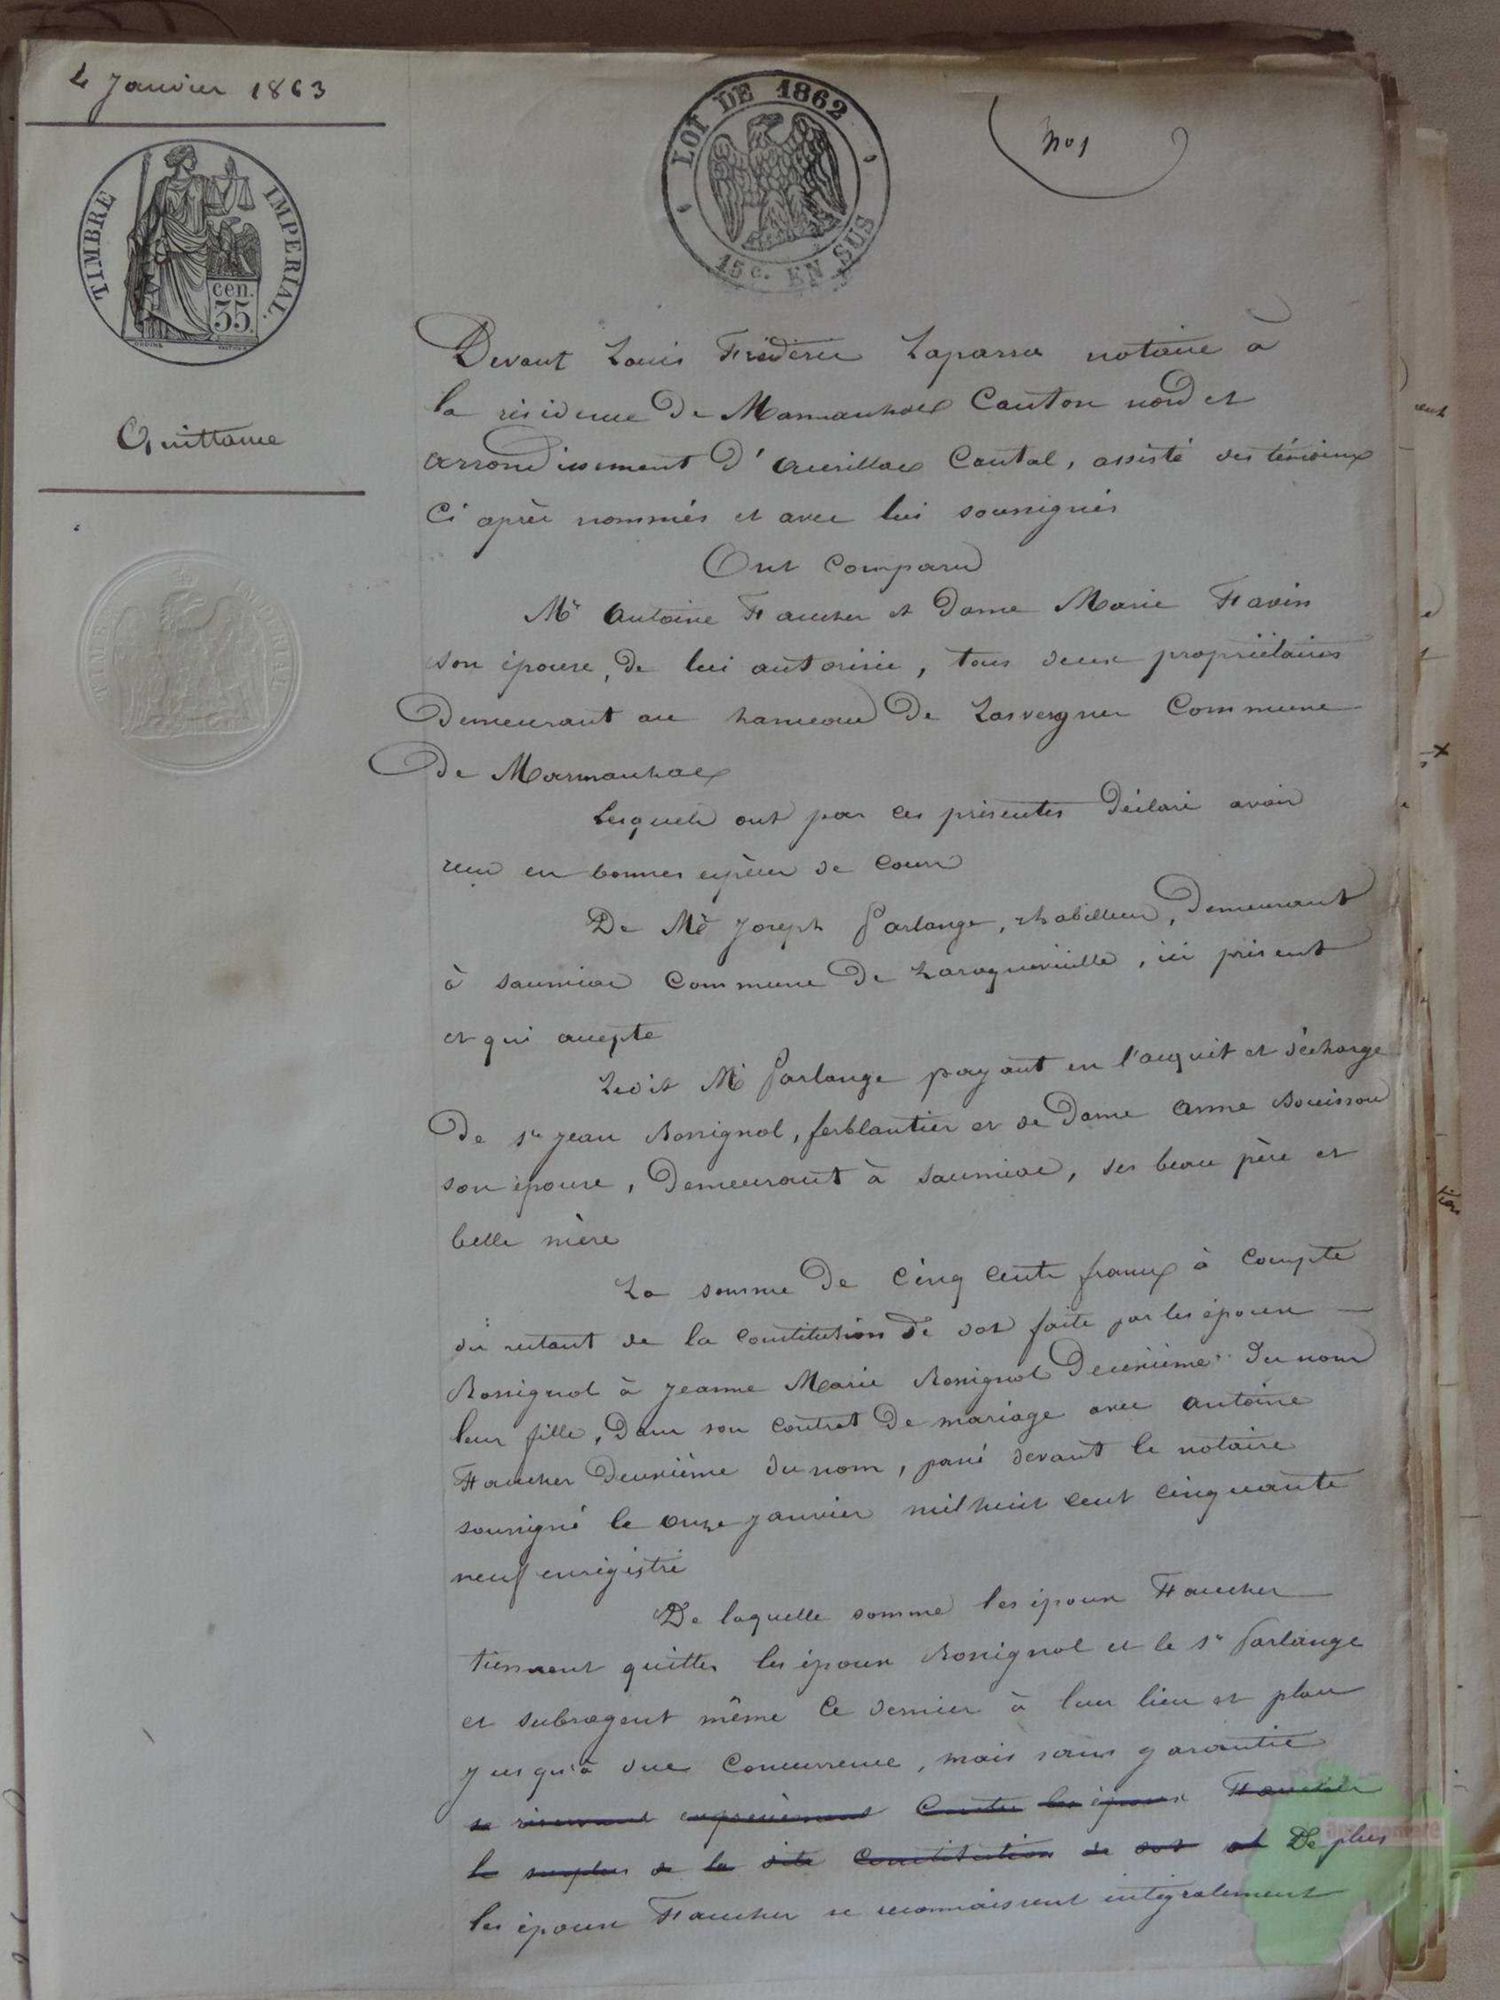 4 Janvier 1863
LOI DE 1862
15 c. EN SUS
No 1
TIMBRE IMPERIAL.
cen.
35.
Quittance
Devant Louis Frédéric Laparra notaire à
la résidence de Marmanhac Canton nord et
arrondissement d'Aurillac Cantal, assisté des témoins
Ci après nommés et avec lui soussignés
Ont comparu
Mr Antoine Faucher et Dame Marie Favin
son épouse, de lui autorisée, tous deux propriétaires
Demeurant au hameau de Lasvergnes Commune
de Marmanhac
Lesquels ont par ces présentes déclaré avoir
reçu en bonnes espèces de cours
De Mr Joseph Parlange, rhabilleur, demeurant
à Saumiac Commune de Laroquevieille, ici présent
et qui accepte
Ledit Mr Parlange payant en l'acquit et décharge
De Sr Jean Rossignol, ferblantier et de Dame Anne Bouissou
son épouse, Demeurant à Saumiac, ses beau père et
belle mère
La somme de cinq cents francs à compte
du restant de la constitution de dot faite par les époux
Rossignol à Jeanne Marie Rossignol Deuxième du nom
leur fille, Dans son contrat de mariage avec Antoine
Faucher Deuxième du nom, passé devant le notaire
soussigné le onze janvier mil huit cent cinquante
neuf enregistré
De laquelle somme les époux Faucher
tiennent quittes les époux Rossignol et le Sr Parlange
et subrogent même ce dernier à leur lieu et place
jusqu'à due concurrence, mais sans garantie
se réservant expressément contre les époux Faucher
le surplus de la dite constitution de dot et De plus
les époux Faucher se reconnaissent intégralement